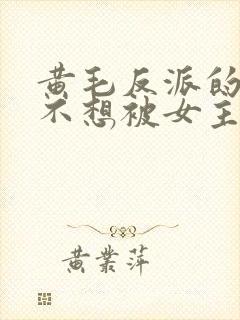 黄毛反派的
不想,被女主
黄業萍